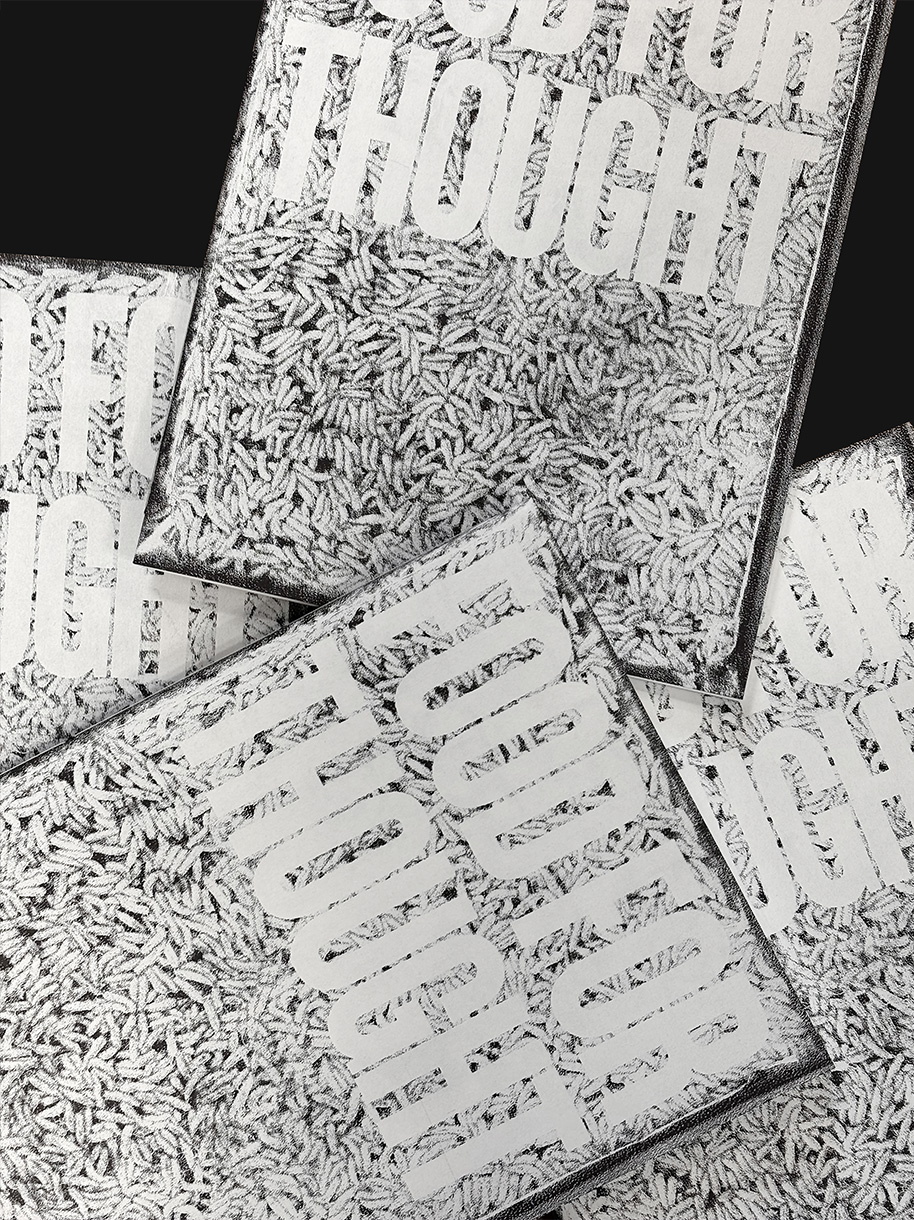 OOD FOR
THOUGHT
D FO
UGHT
FOOD FOR
THOUGHT
OR
UGH